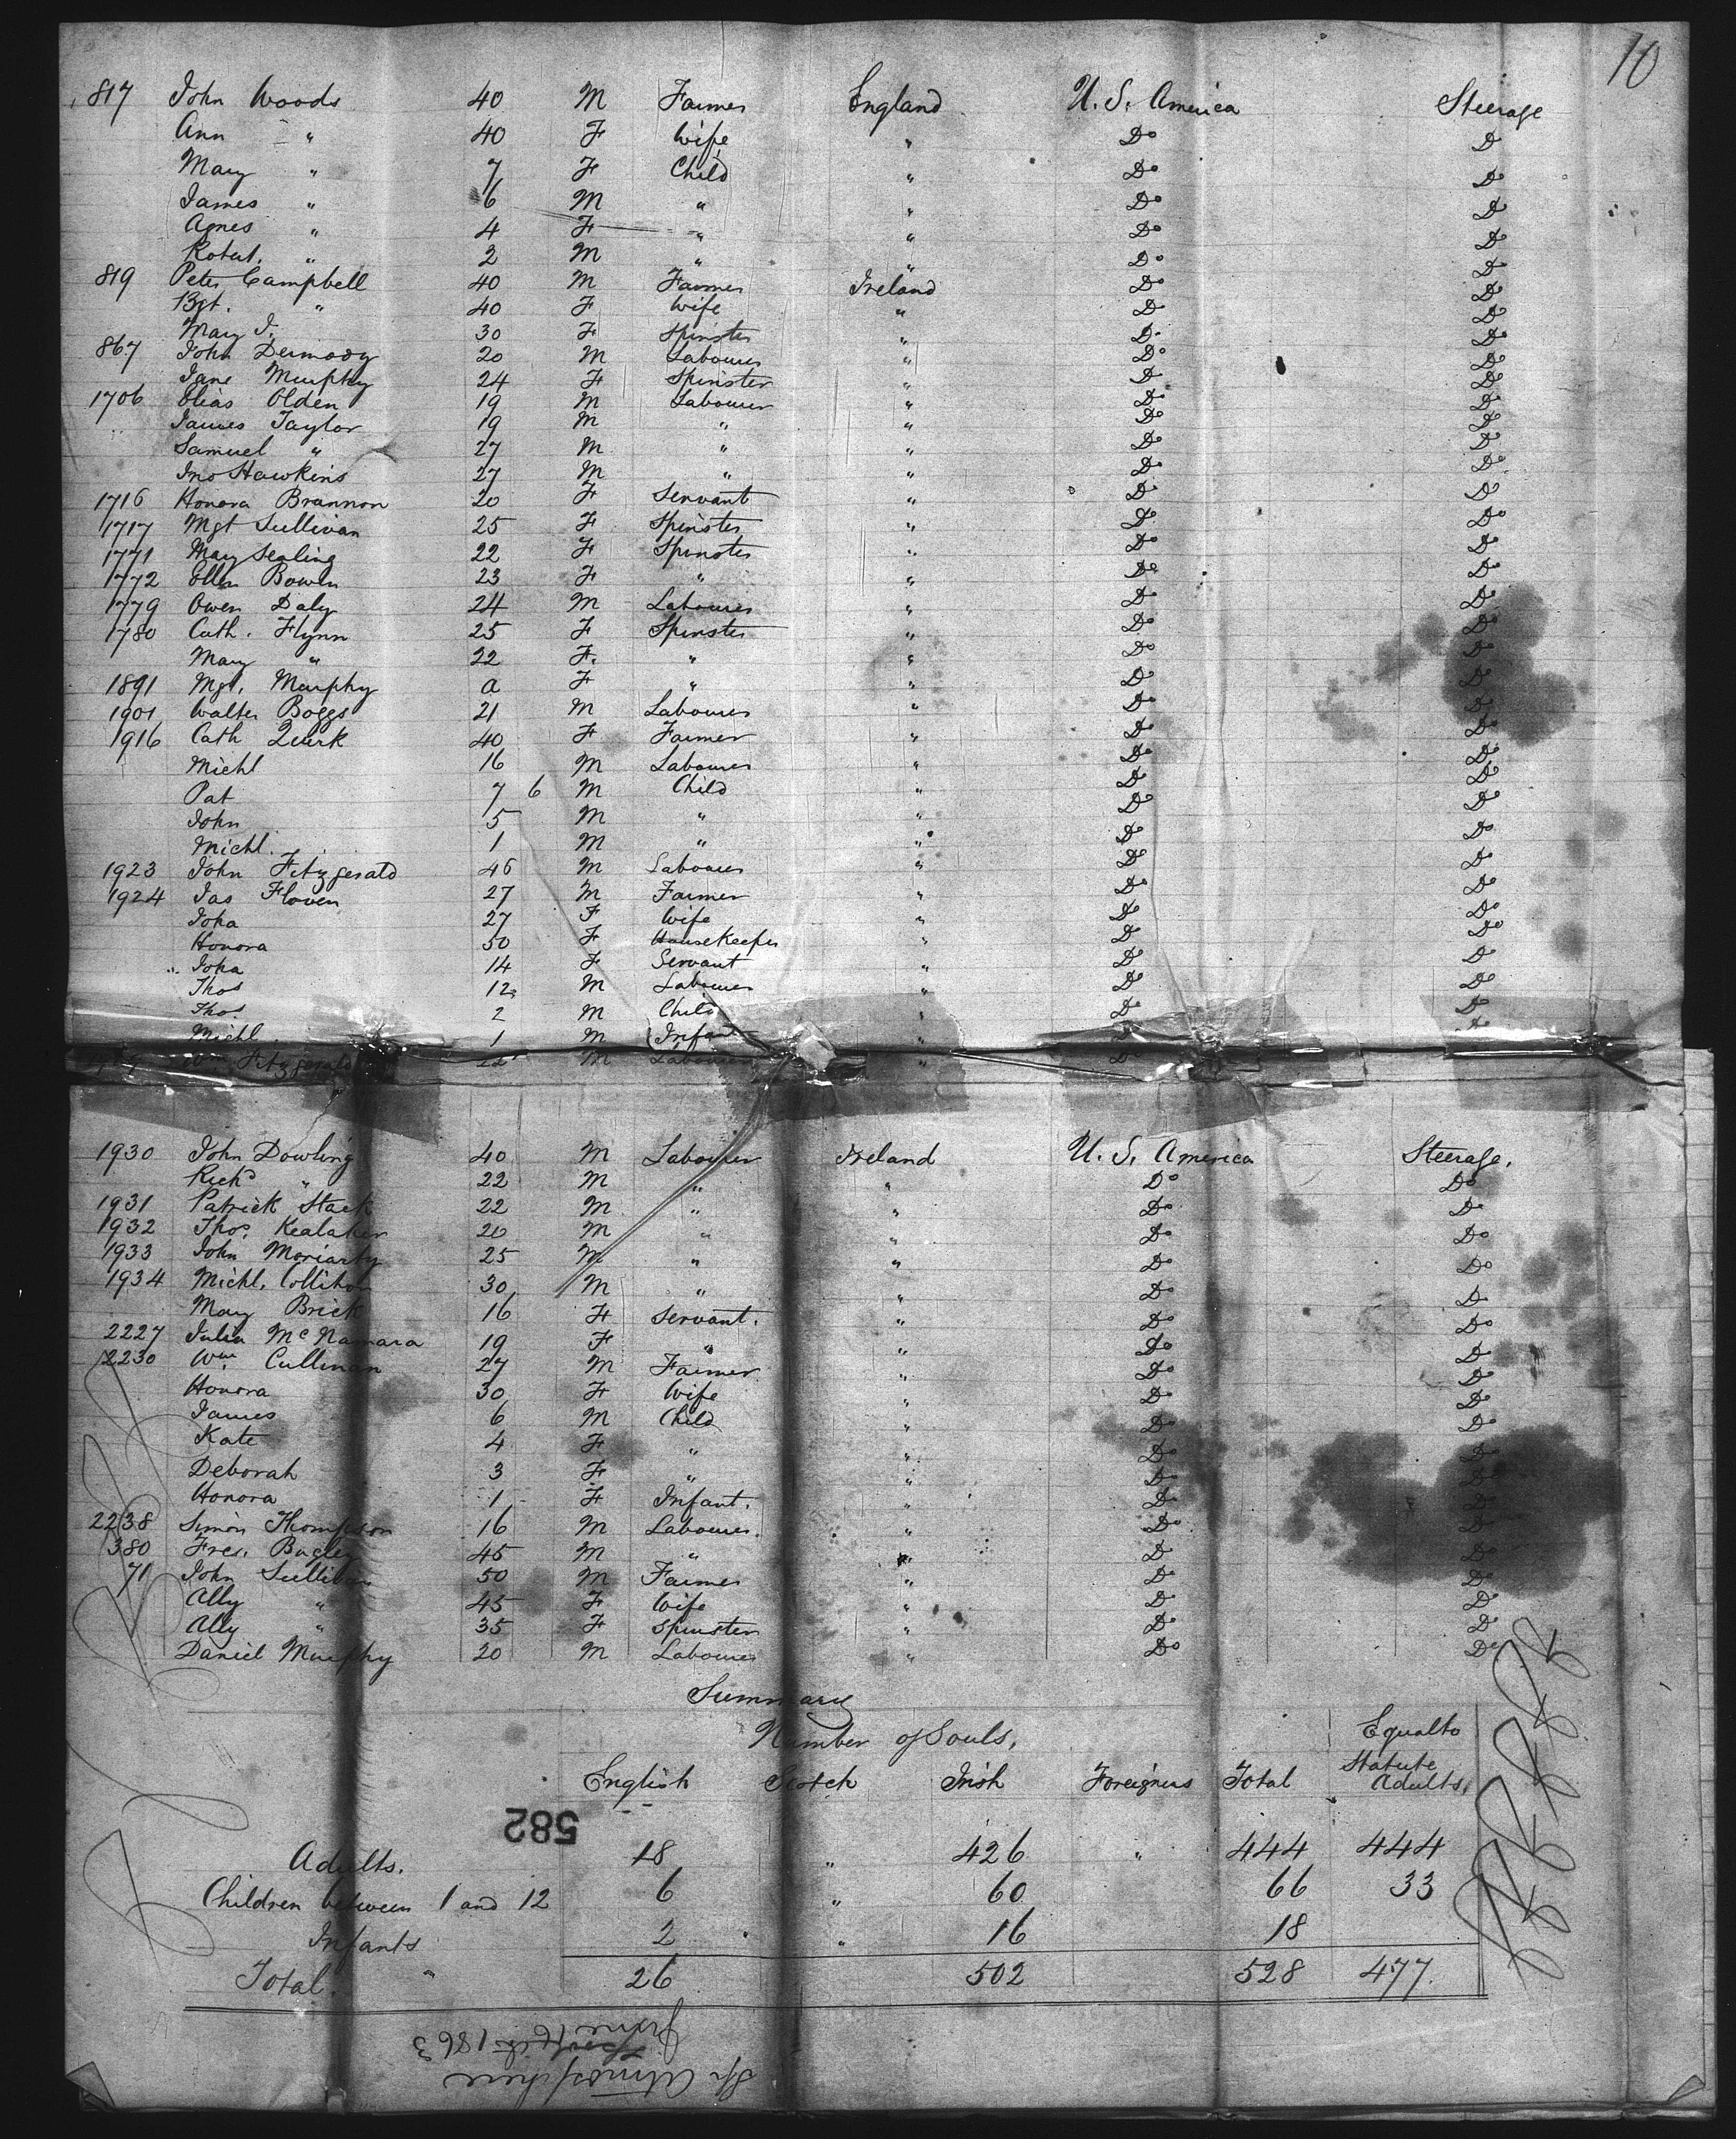 10
817 John Woods 40 M Farmer England U. S. America Steerage
Ann " 40 F Wife " Do Do
Mary " 7 F Child " Do Do
James " 6 M " " Do Do
Agnes " 4 F " " Do Do
Robert. " 2 M " " Do Do
819 Peter Campbell 40 M Farmer Ireland Do Do
Bgt. " 40 F Wife " Do Do
Mary J. 30 F Spinster " Do Do
867 John Dermody 20 M Labourer " Do Do
Jane Murphy 24 F Spinster " Do Do
1706 Elias Olden 19 M Labourer " Do Do
James Taylor 19 M " " Do Do
Samuel " 27 M " " Do Do
Jno Hawkins 27 M " " Do Do
1716 Honora Brannon 20 F Servant " Do Do
1717 Mgt Sullivan 25 F Spinster " Do Do
1771 Mary Sealing 22 F Spinster " Do Do
1772 Ellen Bowen 23 F " " Do Do
1779 Owen Daly 24 M Labourer " Do Do
1780 Cath. Flynn 25 F Spinster " Do Do
Mary " 22 F. " " Do Do
1891 Mgt. Murphy a F " " Do Do
1901 Walter Boggs 21 M Labourer " Do Do
1916 Cath Quirk 40 F Farmer " Do Do
Michl 16 M Labourer " Do Do
Pat 7 6 M Child " Do Do
John 5 M " " Do Do
Michl. 1 M " " Do Do
1923 John Fitzgerald 46 M Labourer " Do Do
1924 Jas Floven 27 M Farmer " Do Do
Joha 27 F Wife " Do Do
Honora 50 F Housekeeper " Do Do
" Joha 14 F Servant " Do Do
Thos 12 M Labourer " Do Do
Thos. 2 M Child " Do Do
Michl. 1 M Infant " Do
Wm Fitzgerald M Labourer " Do
1930 John Dowling 40 M Labourer Ireland U. S. America Steerage.
Richd " 22 M " " Do Do
1931 Patrick Stack 22 M " " Do Do
1932 Thos. Kealaher 20 M " " Do Do
1933 John Moriarty 25 M " " Do Do
1934 Michl. Colliton 30 M " " Do Do
Mary Brick 16 F Servant. " Do Do
2227 Julia McNamara 19 F " " Do Do
2230 Wm. Cullinan 27 M Farmer " Do Do
Honora 30 F Wife " Do Do
James 6 M Child " Do Do
Kate 4 F " " Do Do
Deborah 3 F " " Do Do
Honora 1 F Infant. " Do Do
2238 Simon Thompson 16 M Labourer. " Do Do
380 Fres. Bagley 45 M " " Do Do
71 John Sullivan 50 M Farmer " Do Do
Ally " 45 F Wife " Do Do
Ally " 35 F Spinster " Do Do
Daniel Murphy 20 M Labourer " Do Do
Summary
Number of Souls.
English Scotch Irish Foreigners Total Equal to Statute Adults.
582
Adults. 18 " 426 " 444 444
Children between 1 and 12 6 " 60 66 33
Infants 2 " 16 18
Total. " 26 502 528 477.
Sp Atmosphere
June 16th 1863